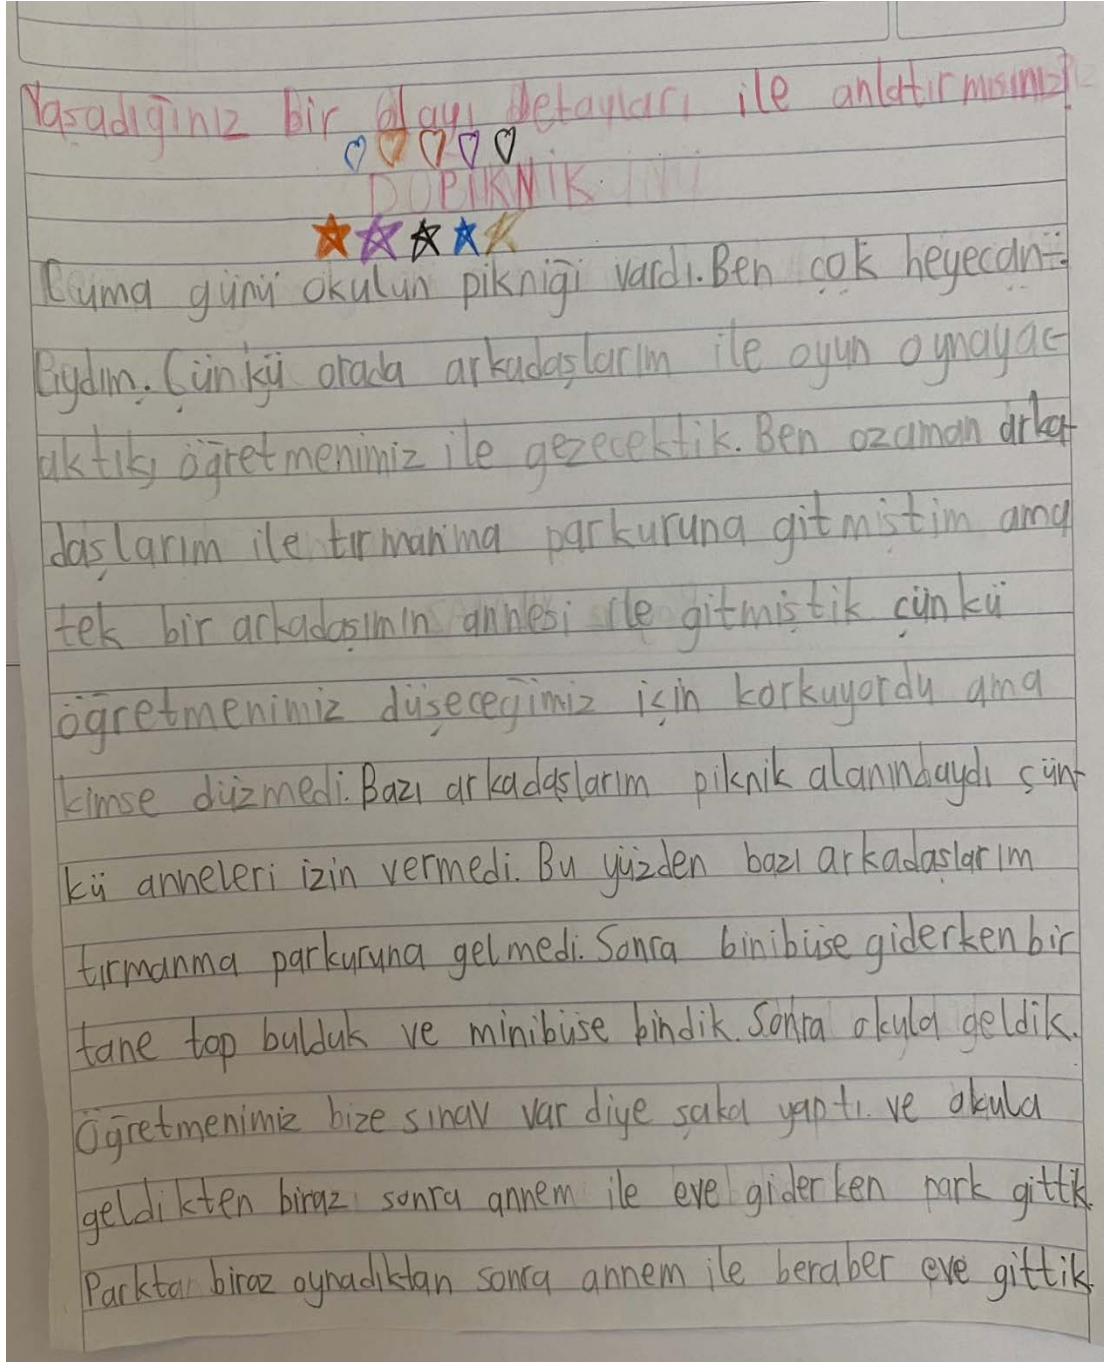 Yaşadığınız bir olayı detayları ile anlatırmısınız?
PİKNİK
Cuma günü okulun pikniği vardı. Ben çok heyecan-
lıydım. Çünkü orada arkadaşlarım ile oyun oynayac-
aktık, öğretmenimiz ile gezecektik. Ben ozaman arka-
daşlarım ile tırmanma parkuruna gitmiştim ama
tek bir arkadaşımın annesi ile gitmiştik çünkü
öğretmenimiz düşeceğimiz için korkuyordu ama
kimse düzmedi. Bazı arkadaşlarım piknik alanındaydı çün-
kü anneleri izin vermedi. Bu yüzden bazı arkadaşlarım
tırmanma parkuruna gelmedi. Sonra binibüse giderken bir
tane top bulduk ve minibüse bindik. Sonra okula geldik.
Öğretmenimiz bize sınav var diye şaka yaptı. ve okula
geldikten biraz sonra annem ile eve giderken park gittik.
Parkta biraz oynadıktan sonra annem ile beraber eve gittik.